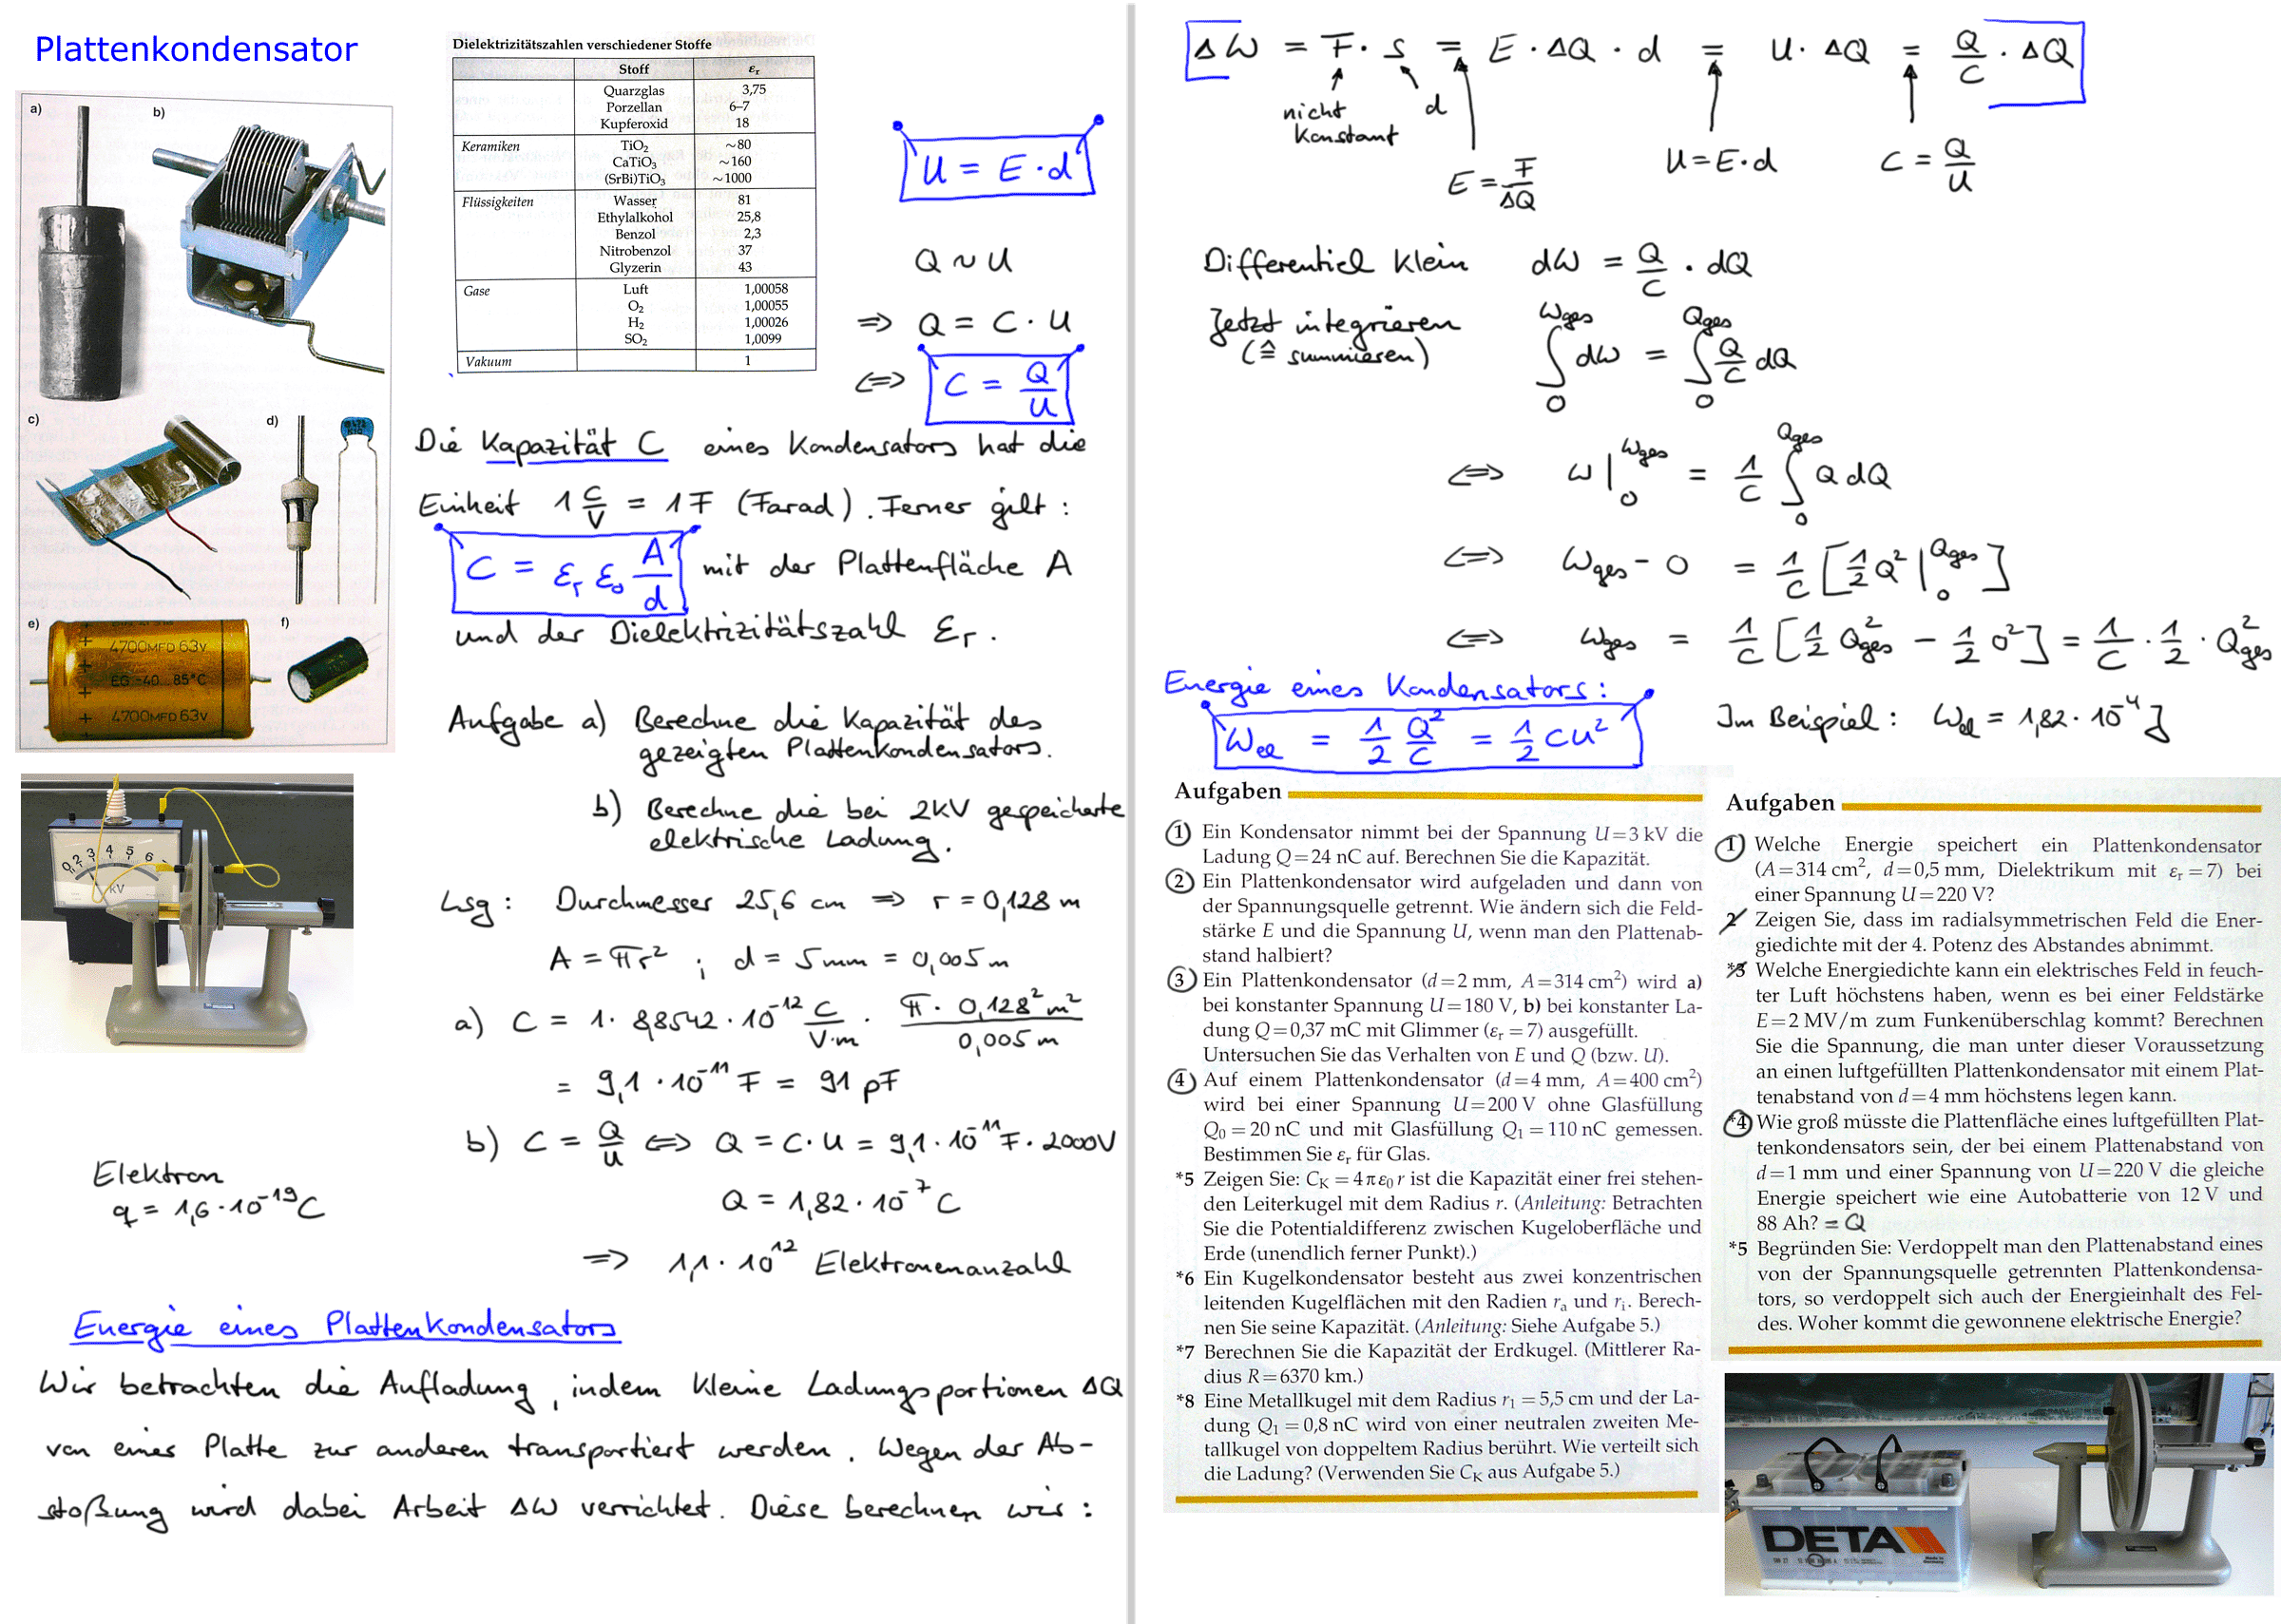 Plattenkondensator
a)
b)
c)
d)
e)
f)
4700MFD 63V
EG -40...85°C
4700MFD 63V
Dielektrizitätszahlen verschiedener Stoffe
Stoff εr
Quarzglas 3,75
Porzellan 6–7
Kupferoxid 18
Keramiken TiO₂ ~80
CaTiO₃ ~160
(SrBi)TiO₃ ~1000
Flüssigkeiten Wasser 81
Ethylalkohol 25,8
Benzol 2,3
Nitrobenzol 37
Glyzerin 43
Gase Luft 1,00058
O₂ 1,00055
H₂ 1,00026
SO₂ 1,0099
Vakuum 1
U = E · d
Q ~ U
⇒ Q = C · U
⇔ C = Q/U
Die Kapazität C eines Kondensators hat die
Einheit 1 C/V = 1 F (Farad). Ferner gilt:
C = εr ε₀ A/d mit der Plattenfläche A
und der Dielektrizitätszahl εr.
Aufgabe a) Berechne die Kapazität des
gezeigten Plattenkondensators.
b) Berechne die bei 2kV gespeicherte
elektrische Ladung.
kV
Lsg: Durchmesser 25,6 cm ⇒ r = 0,128 m
A = πr² ; d = 5mm = 0,005 m
a) C = 1 · 8,8542 · 10⁻¹² C/(V·m) · (π · 0,128² m²)/(0,005 m)
= 9,1 · 10⁻¹¹ F = 91 pF
b) C = Q/U ⇔ Q = C · U = 9,1 · 10⁻¹¹ F · 2000V
Q = 1,82 · 10⁻⁷ C
⇒ 1,1 · 10¹² Elektronenanzahl
Elektron
q = 1,6 · 10⁻¹⁹ C
Energie eines Plattenkondensators
Wir betrachten die Aufladung, indem kleine Ladungsportionen ΔQ
von einer Platte zur anderen transportiert werden. Wegen der Ab-
stoßung wird dabei Arbeit ΔW verrichtet. Diese berechnen wir:
ΔW = F · s = E · ΔQ · d = U · ΔQ = Q/C · ΔQ
nicht
konstant
d
E = F/ΔQ
U = E · d
C = Q/U
Differentiel klein dW = Q/C · dQ
Jetzt integrieren
(≙ summieren)
∫₀^Wges dW = ∫₀^Qges Q/C dQ
⇔ W |₀^Wges = 1/C ∫₀^Qges Q dQ
⇔ Wges - 0 = 1/C [1/2 Q² |₀^Qges]
⇔ Wges = 1/C [1/2 Qges² - 1/2 0²] = 1/C · 1/2 · Qges²
Energie eines Kondensators:
Wel = 1/2 Q²/C = 1/2 CU²
Im Beispiel: Wel = 1,82 · 10⁻⁴ J
Aufgaben
1 Ein Kondensator nimmt bei der Spannung U=3 kV die
Ladung Q=24 nC auf. Berechnen Sie die Kapazität.
2 Ein Plattenkondensator wird aufgeladen und dann von
der Spannungsquelle getrennt. Wie ändern sich die Feld-
stärke E und die Spannung U, wenn man den Plattenab-
stand halbiert?
3 Ein Plattenkondensator (d=2 mm, A=314 cm²) wird a)
bei konstanter Spannung U=180 V, b) bei konstanter La-
dung Q=0,37 mC mit Glimmer (εr=7) ausgefüllt.
Untersuchen Sie das Verhalten von E und Q (bzw. U).
4 Auf einem Plattenkondensator (d=4 mm, A=400 cm²)
wird bei einer Spannung U=200 V ohne Glasfüllung
Q₀=20 nC und mit Glasfüllung Q₁=110 nC gemessen.
Bestimmen Sie εr für Glas.
*5 Zeigen Sie: CK=4πε₀r ist die Kapazität einer frei stehen-
den Leiterkugel mit dem Radius r. (Anleitung: Betrachten
Sie die Potentialdifferenz zwischen Kugeloberfläche und
Erde (unendlich ferner Punkt).)
*6 Ein Kugelkondensator besteht aus zwei konzentrischen
leitenden Kugelflächen mit den Radien ra und ri. Berech-
nen Sie seine Kapazität. (Anleitung: Siehe Aufgabe 5.)
*7 Berechnen Sie die Kapazität der Erdkugel. (Mittlerer Ra-
dius R=6370 km.)
*8 Eine Metallkugel mit dem Radius r₁=5,5 cm und der La-
dung Q₁=0,8 nC wird von einer neutralen zweiten Me-
tallkugel von doppeltem Radius berührt. Wie verteilt sich
die Ladung? (Verwenden Sie CK aus Aufgabe 5.)
Aufgaben
1 Welche Energie speichert ein Plattenkondensator
(A=314 cm², d=0,5 mm, Dielektrikum mit εr=7) bei
einer Spannung U=220 V?
2 Zeigen Sie, dass im radialsymmetrischen Feld die Ener-
giedichte mit der 4. Potenz des Abstandes abnimmt.
*3 Welche Energiedichte kann ein elektrisches Feld in feuch-
ter Luft höchstens haben, wenn es bei einer Feldstärke
E=2 MV/m zum Funkenüberschlag kommt? Berechnen
Sie die Spannung, die man unter dieser Voraussetzung
an einen luftgefüllten Plattenkondensator mit einem Plat-
tenabstand von d=4 mm höchstens legen kann.
*4 Wie groß müsste die Plattenfläche eines luftgefüllten Plat-
tenkondensators sein, der bei einem Plattenabstand von
d=1 mm und einer Spannung von U=220 V die gleiche
Energie speichert wie eine Autobatterie von 12 V und
88 Ah? = Q
*5 Begründen Sie: Verdoppelt man den Plattenabstand eines
von der Spannungsquelle getrennten Plattenkondensa-
tors, so verdoppelt sich auch der Energieinhalt des Fel-
des. Woher kommt die gewonnene elektrische Energie?
DETA